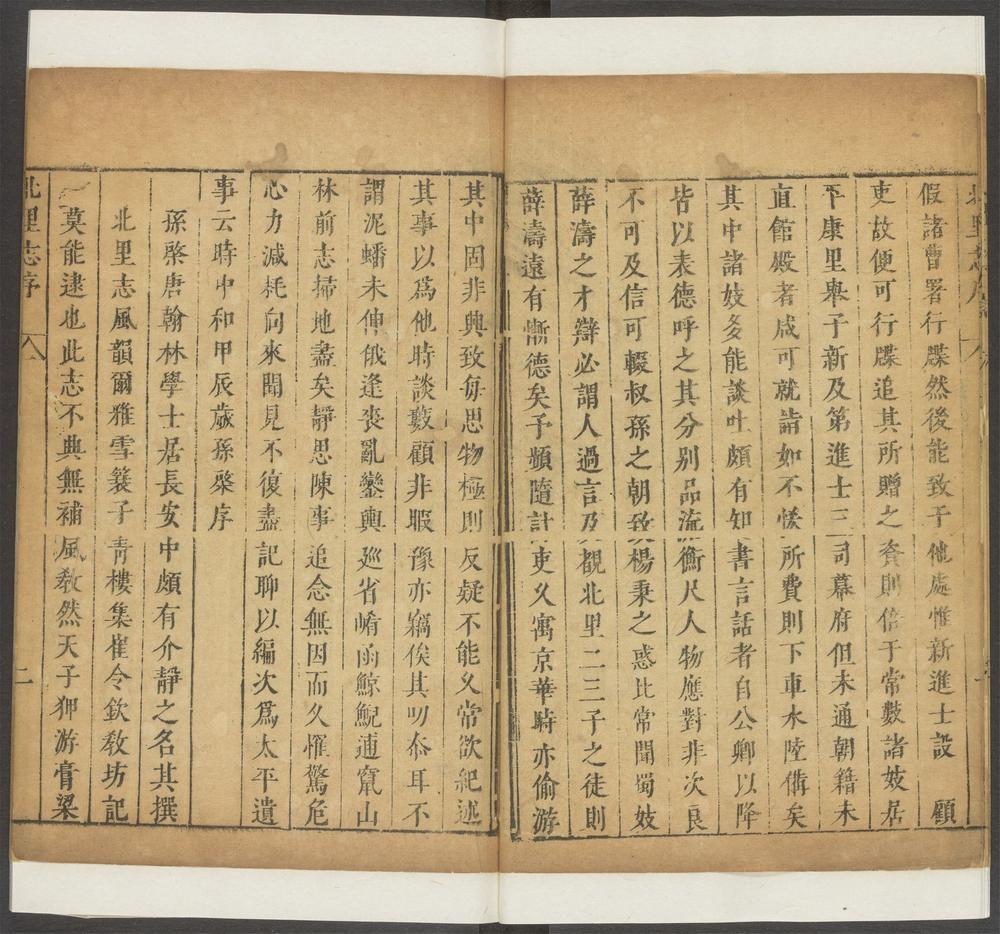 假諸曹署行牒然後能致于他處惟新進士設 顧
吏故便可行牒追其所贈之資則倍于常數諸妓居
平康里舉子新及第進士三司幕府但未通朝籍未
直館殿者咸可就詣如不悋所費則下車水陸備矣
其中諸妓多能談吐頗有知書言話者自公卿以降
皆以表德呼之其分别品流衡尺人物應對非次良
不可及信可輟叔孫之朝致楊秉之惑比常聞蜀妓
薛濤之才辯必謂人過言及覩北里二三子之徒則
薛濤遠有慚德矣予頻隨計吏乆寓京華時亦偷游
其中固非興致每思物極則反疑不能乆常欲紀述
其事以爲他時談藪顧非暇豫亦竊俟其叨忝耳不
謂泥蟠未伸俄逢喪亂鑾輿廵省崤函鯨鯢逋竄山
林前志掃地盡矣靜思陳事追念無因而久懼驚危
心力減耗向來聞見不復盡記聊以編次爲太平遺
事云時中和甲辰歲孫棨序
孫棨唐翰林學士居長安中頗有介靜之名其撰
北里志風韻爾雅雪簑子青樓集崔令欽敎坊記
莫能逮也此志不典無補風敎然天子狎游膏梁
北里志序 二